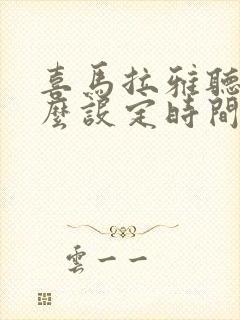 喜馬拉雅聽
麼設定時間
雲一一